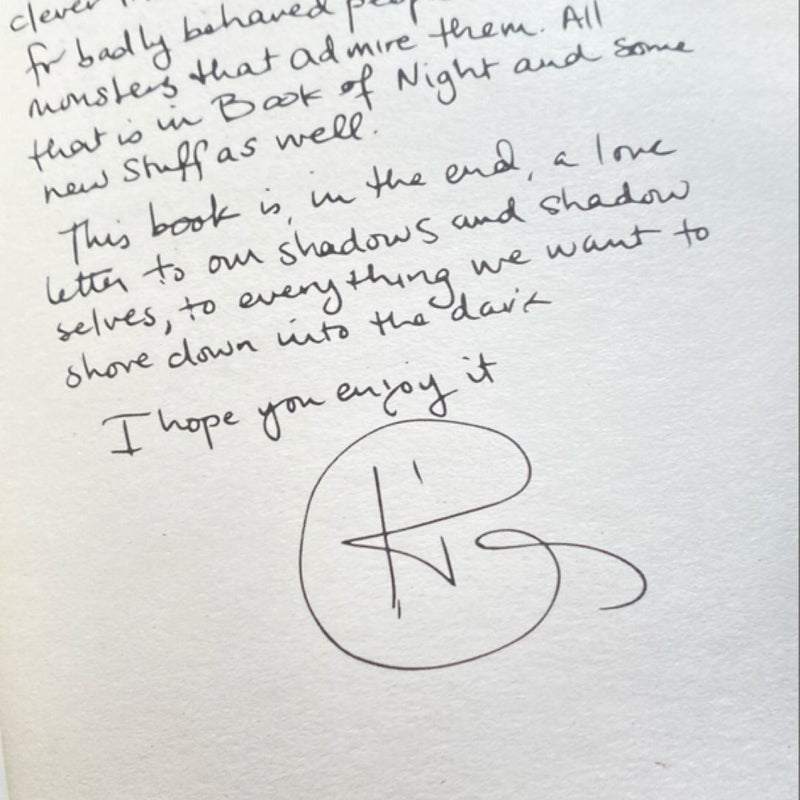 clever
for badly behaved
monsters that admire them. All
that is in Book of Night and some
new stuff as well.
This book is, in the end, a love
letter to our shadows and shadow
selves, to everything we want to
shove down into the dark
I hope you enjoy it